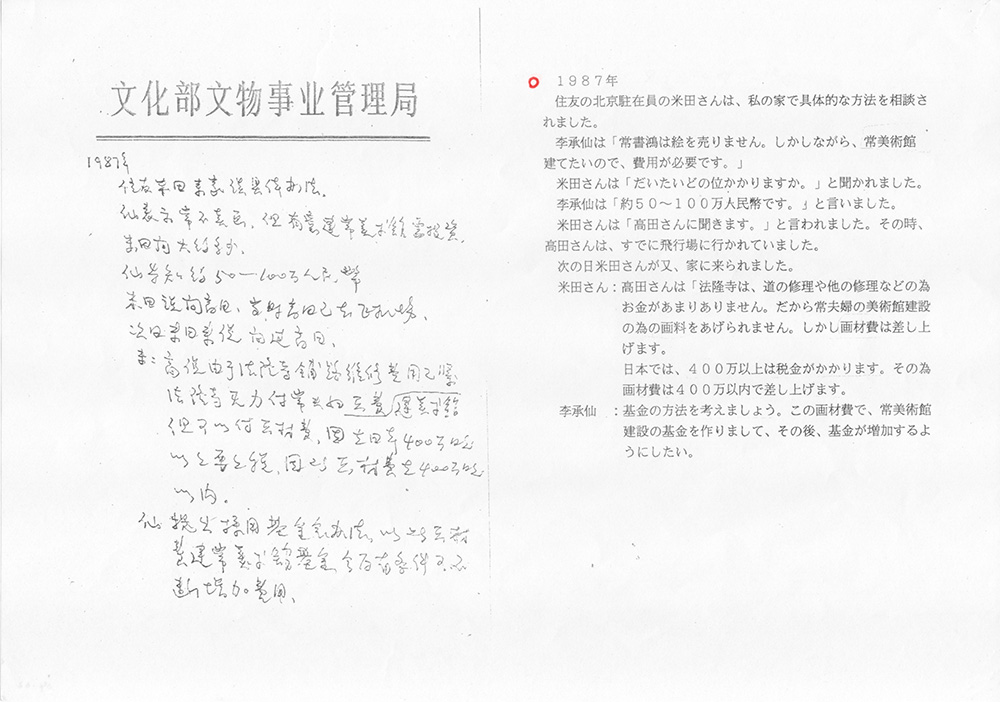 文化部文物事业管理局
1987年
住友米田来家谈具体办法.
仙表示常不卖画,但有意建常美术馆需投资,
米田问大约多少.
仙告知约50—100万人民幣
米田说问高田,当时高田已去飞机场,
次日米田来说 问过高田,
米:高说由于法隆寺铺路维修费用已紧
法隆寺无力付常夫妇画费(建美术馆
但可以付画材费,因在日本400万日元
以上要上税,因此画材费在400万日元
以内。
仙 提出採用基金会办法,以此画材
费建常美术馆基金 今后
断增加费用、
1987年
住友の北京駐在員の米田さんは、私の家で具体的な方法を相談さ
れました。
李承仙は「常書鴻は絵を売りません。しかしながら、常美術館
建てたいので、費用が必要です。」
米田さんは「だいたいどの位かかりますか。」と聞かれました。
李承仙は「約50〜100万人民幣です。」と言いました。
米田さんは「高田さんに聞きます。」と言われました。その時、
高田さんは、すでに飛行場に行かれていました。
次の日米田さんが又、家に来られました。
米田さん:高田さんは「法隆寺は、道の修理や他の修理などの為
お金があまりありません。だから常夫婦の美術館建設
の為の画料をあげられません。しかし画材費は差し上
げます。
日本では、400万以上は税金がかかります。その為
画材費は400万以内で差し上げます。
李承仙 :基金の方法を考えましょう。この画材費で、常美術館
建設の基金を作りまして、その後、基金が増加するよ
うにしたい。